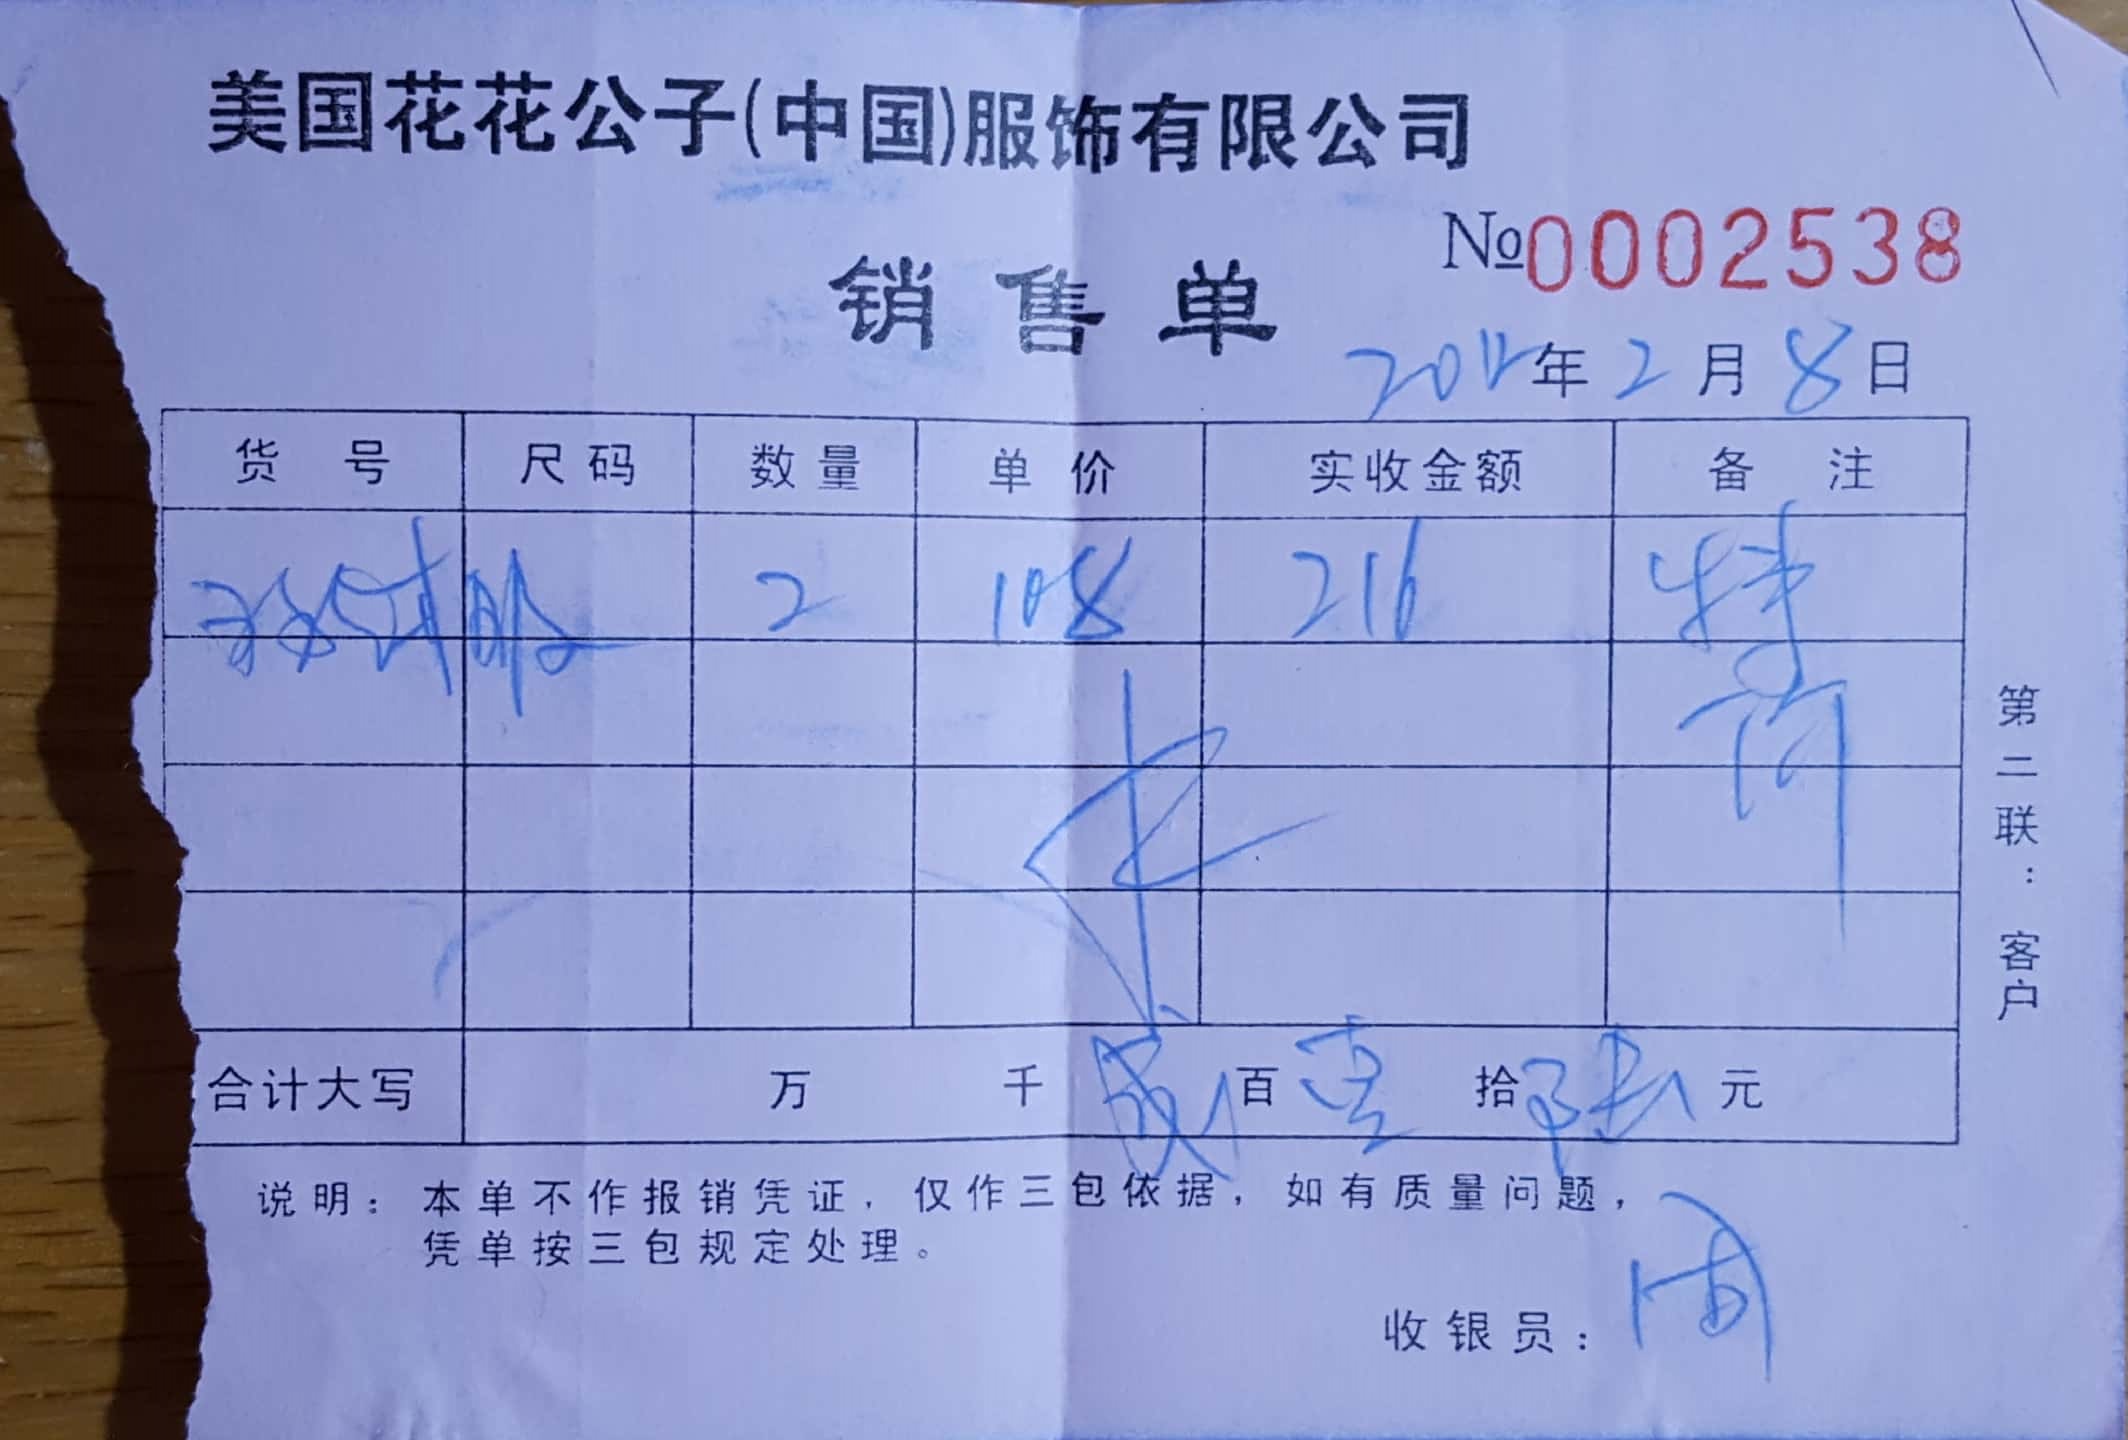 美国花花公子(中国)服饰有限公司
№0002538
销售单
年 2 月 8 日
货号 尺码 数量 单价 实收金额 备注
2 108 216 特
价
合计大写 万 千 贰 百 壹 拾 陆 元
说明：本单不作报销凭证，仅作三包依据，如有质量问题，
凭单按三包规定处理。
收银员：周
第二联：客户